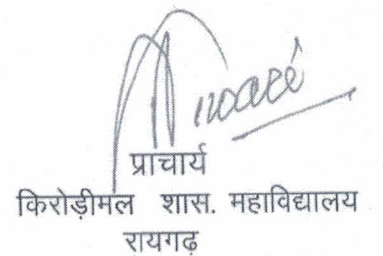 प्राचार्य
किरोड़ीमल शास. महाविद्यालय
रायगढ़